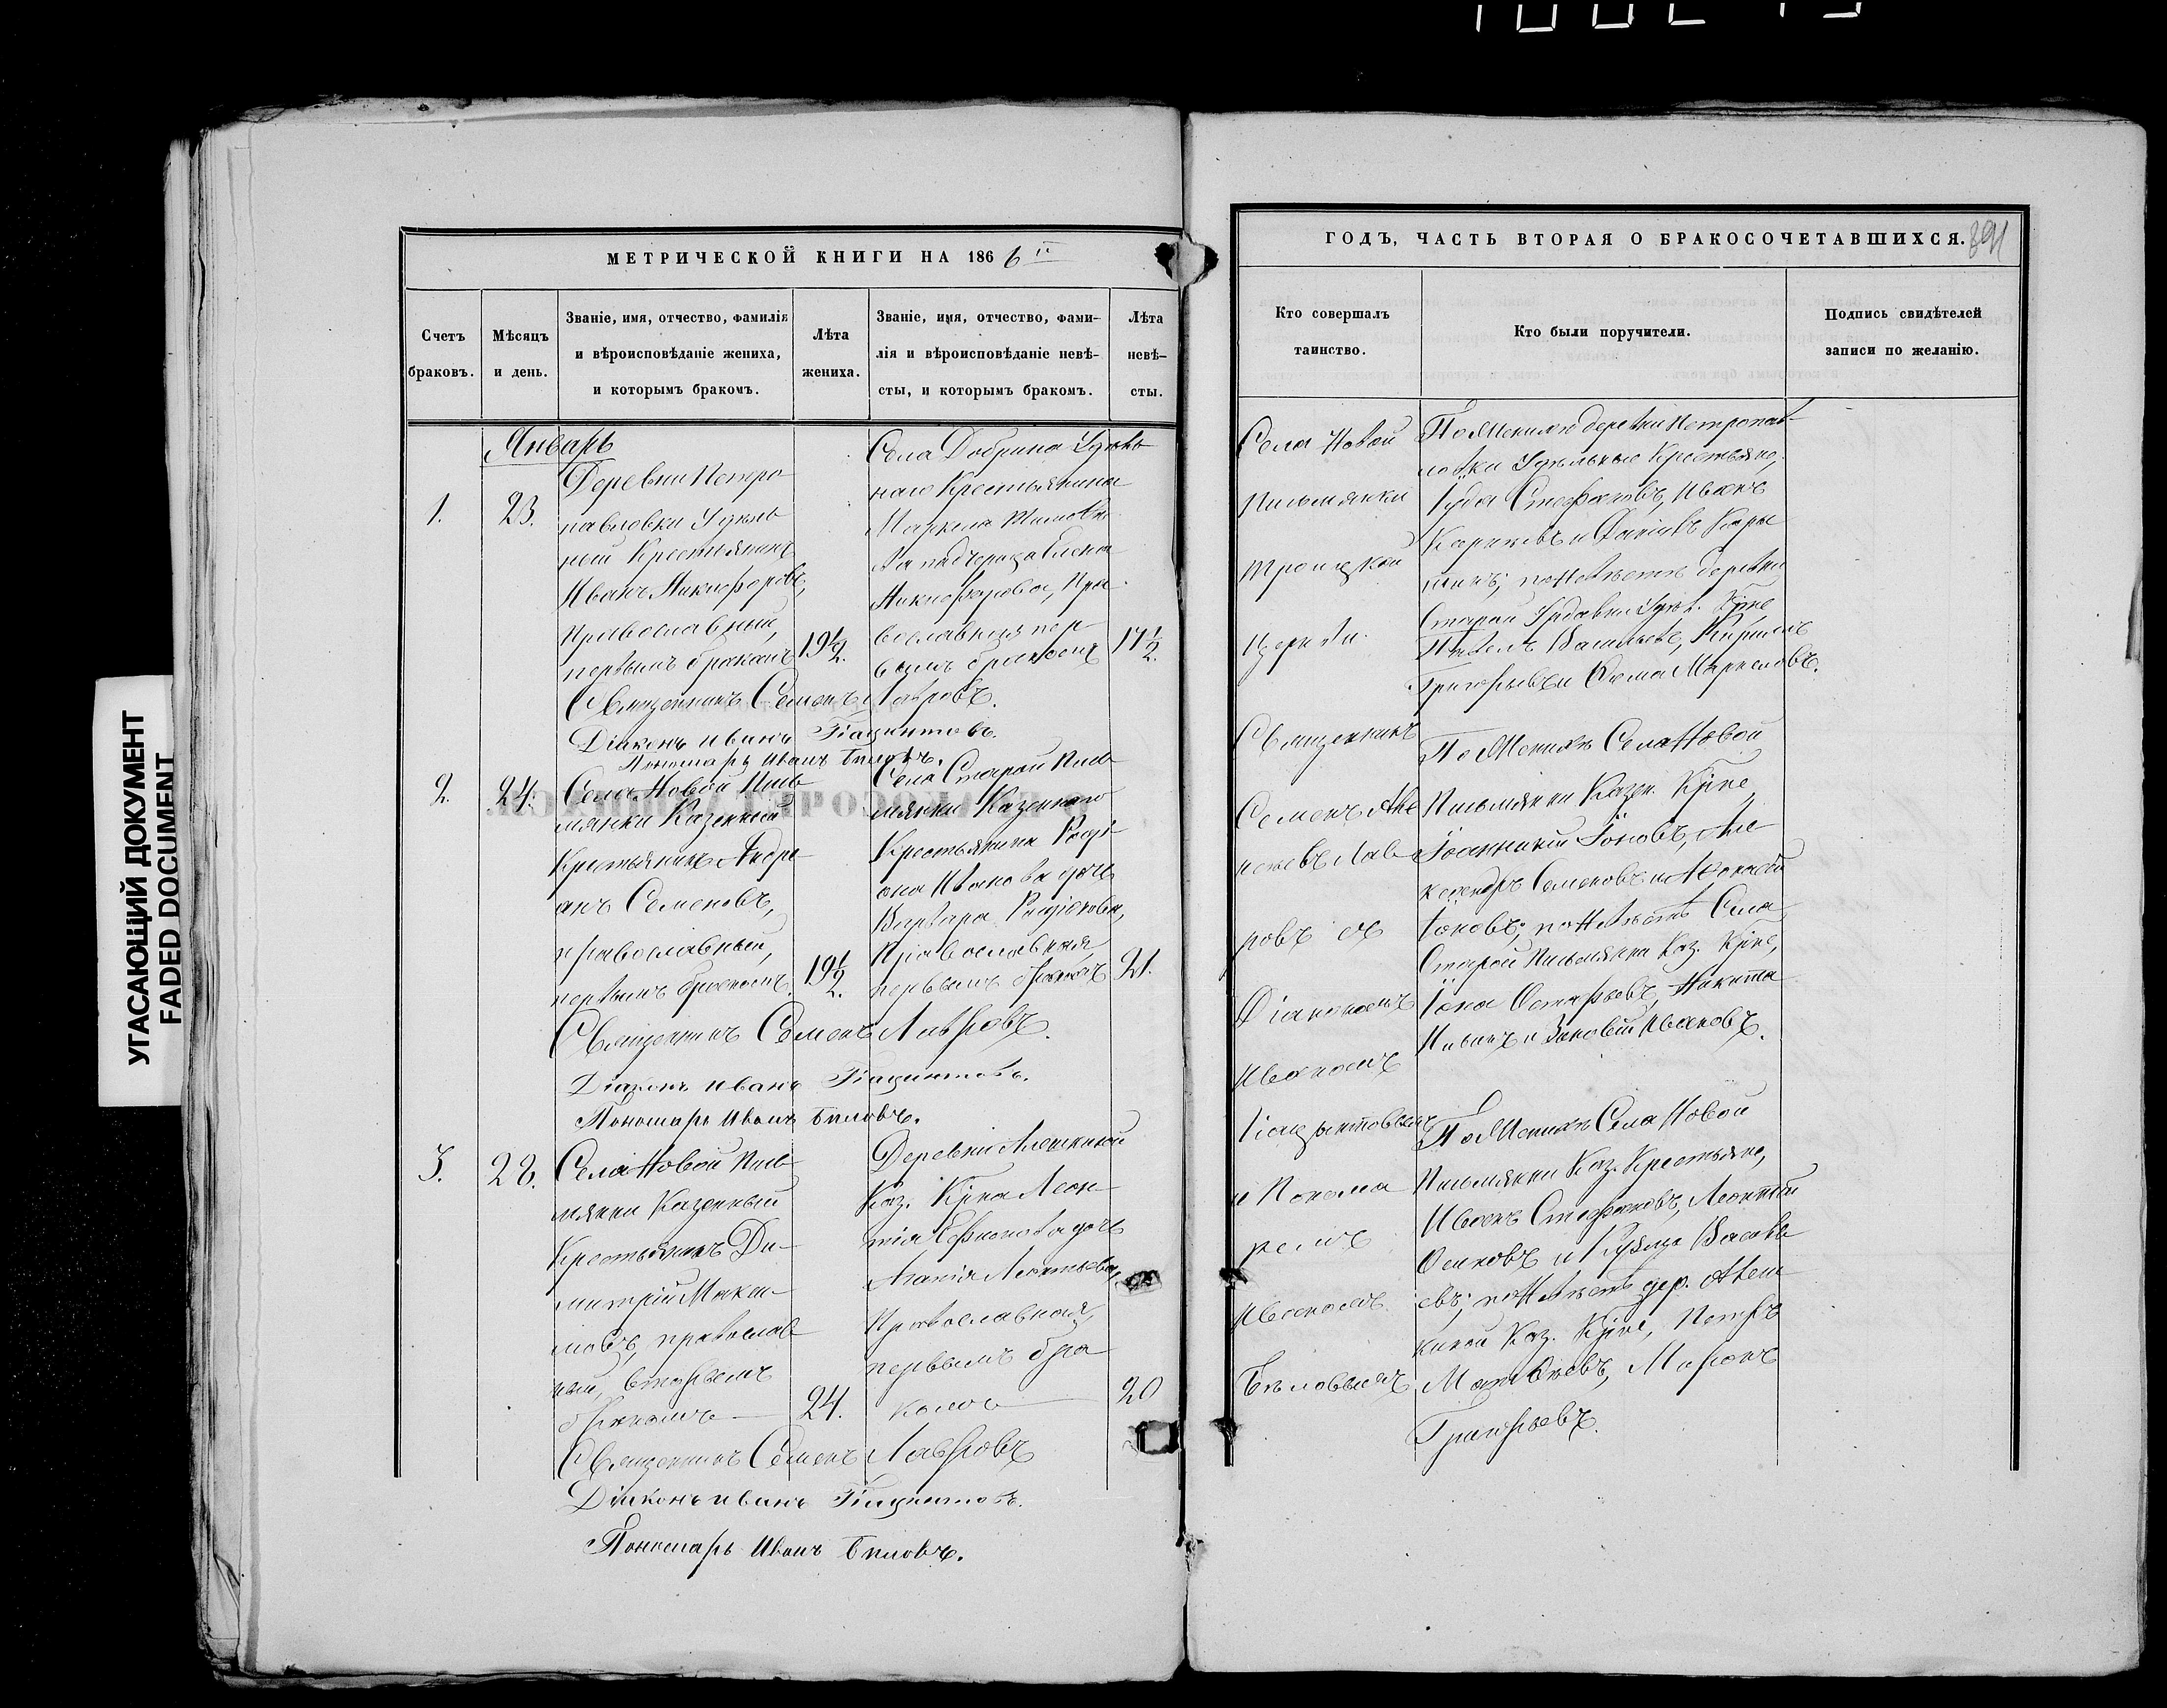 УГАСАЮЩИЙ ДОКУМЕНТ
FADED DOCUMENT
МЕТРИЧЕСКОЙ КНИГИ НА 1866 й
Счетъ
браковъ.
Мѣсяцъ
и день.
Званіе, имя, отчество, фамилія
и вѣроисповѣданіе жениха,
и которымъ бракомъ.
Лѣта
жениха.
Званіе, имя, отчество, фами-
лія и вѣроисповѣданіе невѣ-
сты, и которымъ бракомъ.
Лѣта
невѣ-
сты.
Январь
1.
23.
Деревни Петро
павловки Удѣль
ный Крестьянинъ
Иванъ Никифоровъ,
Православный,
первымъ бракомъ
19 1/2.
Села Добрина Удѣль
наго Крестьянина
Маркела
падчерица Елена
Никифорова, Пра
вославная пер
вымъ бракомъ
17 1/2.
Священникъ Семенъ Лавровъ.
Діаконъ Иванъ Гіацинтовъ.
Пономарь Иванъ Бѣловъ.
2.
24.
Села Новой Пись
мянки Казенный
Крестьянинъ Андре
анъ Семеновъ,
православный,
первымъ бракомъ
19 1/2.
Села Старой Пись
мянки Казеннаго
Крестьянина Родi
она Иванова дочь
Варвара Родіонова,
Православная,
первымъ бракомъ
21.
Священникъ Семенъ Лавровъ.
Діаконъ Иванъ Гіацинтовъ.
Пономарь Иванъ Бѣловъ.
3.
28.
Села Новой Пись
мянки Казенный
Крестьянинъ Ди-
митрій Макси-
мовъ, православ
ный, вторымъ
бракомъ
24.
Деревни Алешкиной
Каз. Кр-на Леон-
тія дочь
Леонтьева,
Православная,
первымъ бра
комъ
20
Священникъ Семенъ Лавровъ
Діаконъ Иванъ Гіацинтовъ.
Пономарь Иванъ Бѣловъ.
ГОДЪ, ЧАСТЬ ВТОРАЯ О БРАКОСОЧЕТАВШИХСЯ.
391
Кто совершалъ
таинство.
Кто были поручители.
Подпись свидѣтелей
записи по желанію.
Села Новой
Письмянки
Троицкой
Церкви
Священникъ
Семенъ Але
ксеевъ Лав
ровъ съ
Діакономъ
Иваномъ
Гіацынтовымъ
и Понома
ремъ
Иваномъ
Бѣловымъ
По Женихѣ деревни Петропав-
ловки Удѣльные Крестьяне,
Іуда Стефановъ, Иванъ
Карповъ и Данiилъ
по Невѣстѣ деревни
Старой Удѣл. Кр-не
Павелъ Васильевъ, Кирилъ
Григорьевъ и Ѳома Маркеловъ.
По Женихѣ Села Новой
Письмянки Казен. Кр-не
Іоанникій Іоновъ, Але
ксандръ Семеновъ и Аѳонасій
Іоновъ; по Невѣстѣ Села
Старой Письмянки Каз. Кр-не,
Іона Остафьевъ, Никита
Ивановъ.
По Женихѣ Села Новой
Письмянки Каз. Крестьяне,
Иванъ Стефановъ, Леонтій
Осиповъ и Кузьма Василь
евъ; по Невѣстѣ дер. Алеш
киной Каз. Кр-не, Петръ
Матвѣевъ, Миронъ
Григорьевъ.